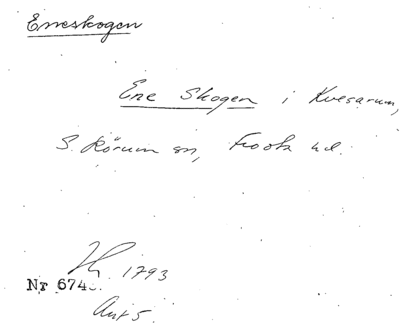 Eneskogen
Ene Skogen i Kvesarum,
S. Rörum sn, Frosta hd.
1793
Nr 674
Akt 5.